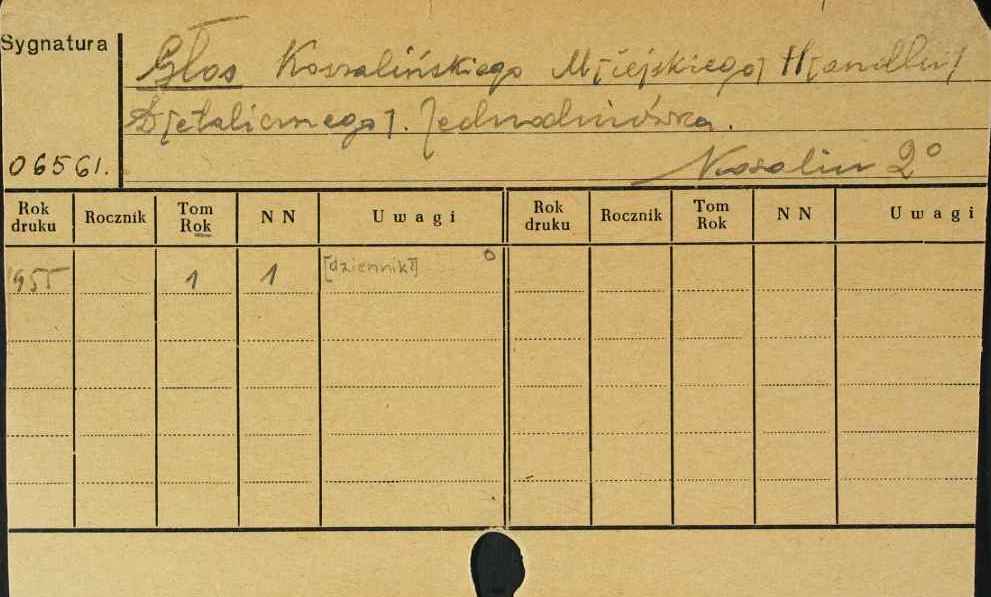 Sygnatura
Głos Koszalińskiego M[iejskiego] H[andlu]
D[etalicznego]. Jednodniówka.
06561.
Koszalin 2°
Rok druku Rocznik Tom Rok NN Uwagi Rok druku Rocznik Tom Rok NN Uwagi
1955 1 1 [dziennik]